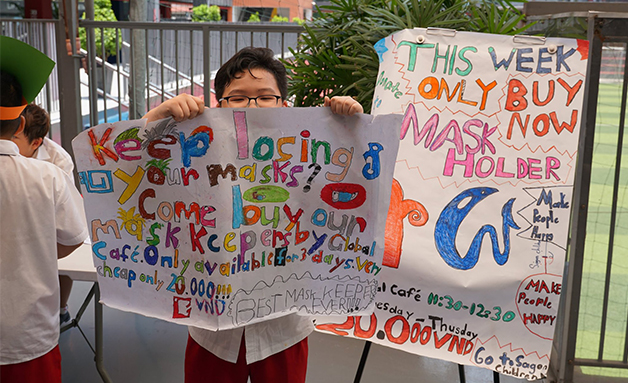 Keep losing
your masks?
Come buy our
mask keepers by Global
Café. Only available for 3 days. Very
cheap only 20.000!!!
VND
BEST MASK KEEPER
EVER!!!
THIS WEEK
ONLY BUY
MASK NOW
HOLDER
Make
People
Happy
al Café 11:30-12:30
esday - Thusday
20.000VND
MAKE
PEOPLE
HAPPY
Go to Sagon
Children